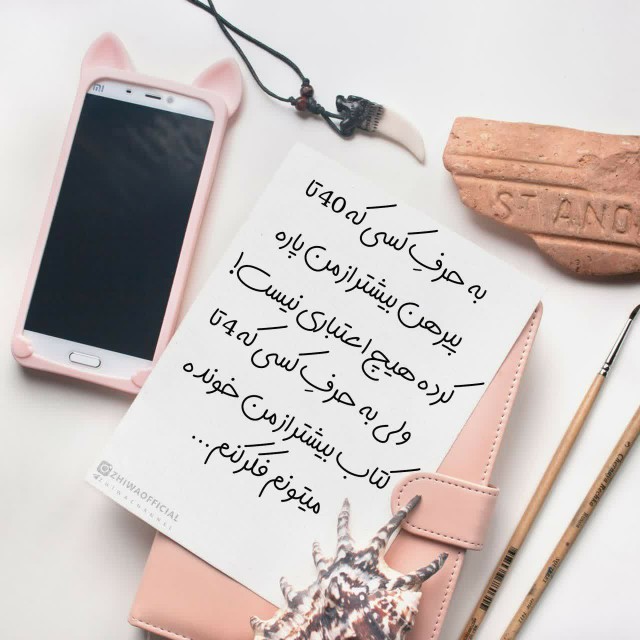 به حرفِ کسی که 40 تا
پیرهن بیشتر از من پاره
کرده هیچ اعتباری نیست!
ولی به حرفِ کسی که 4 تا
کتاب بیشتر از من خونده
میتونم فکر کنم...
ZHIWAOFFICIAL
mi
STIANO